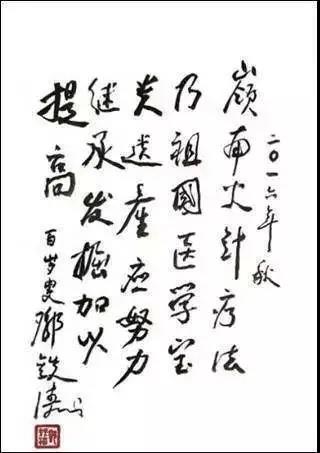 二〇一六年秋
嶺南火针疗法
乃祖國医学宝
贵遗產应努力
继承发掘加以
提高
百岁叟鄧铁涛